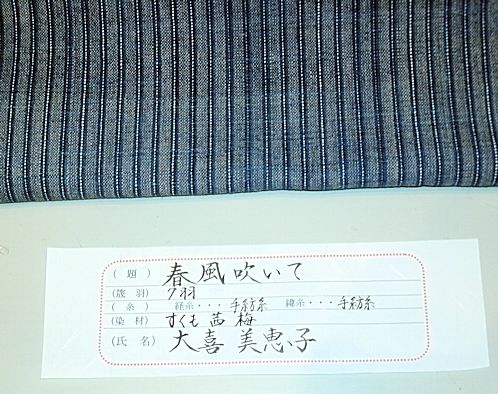 （題） 春風吹いて
（筬羽） 7羽
（糸） 経糸・・・手紡糸 緯糸・・・手紡糸
（染材） すくも 茜 梅
（氏名） 大喜 美恵子